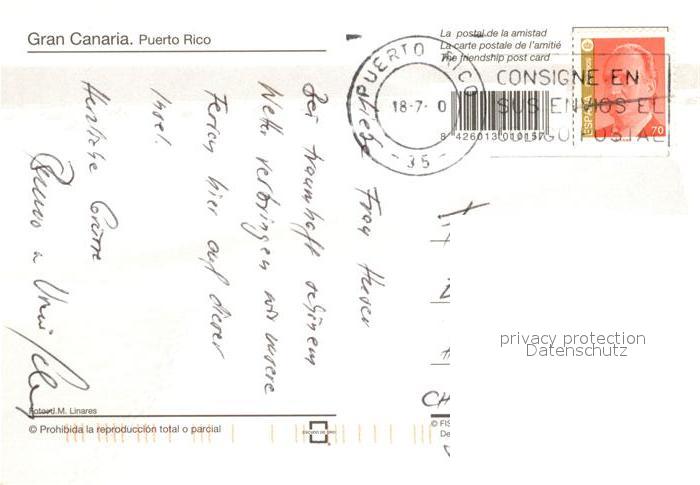 Gran Canaria. Puerto Rico
La postal de la amistad
La carte postale de l'amitié
The friendship post card
PUERTO RICO
18-7- 0
-35-
CONSIGNE EN
SUS ENVIOS EL
POSTAL
ESPAÑA
70
8 426013 010157
Liebe Frau Huser
Bei traumhaft schönem
Wetter verbringen wir unsere
Ferien hier auf dieser
Insel.
Herzliche Grüsse
Bruno u.
CH
Foto: J.M. Linares
© Prohibida la reproducción total o parcial
ESCUDO DE ORO
© FIS
De
privacy protection
Datenschutz